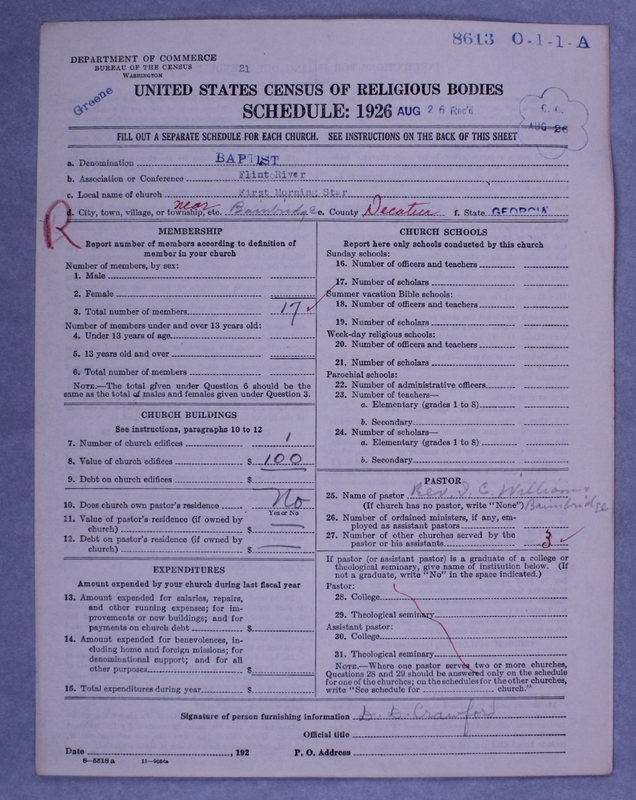 8613 O-1-1-A
DEPARTMENT OF COMMERCE
BUREAU OF THE CENSUS
WASHINGTON
21
Greene
UNITED STATES CENSUS OF RELIGIOUS BODIES
SCHEDULE: 1926 AUG 26 Rec'd
C. O.
AUG 26
FILL OUT A SEPARATE SCHEDULE FOR EACH CHURCH. SEE INSTRUCTIONS ON THE BACK OF THIS SHEET
a. Denomination BAPTIST
b. Association or Conference Flint River
c. Local name of church First Morning Star
R d. City, town, village, or township, etc. near Bainbridge e. County Decatur f. State GEORGIA
MEMBERSHIP
Report number of members according to definition of
member in your church
Number of members, by sex:
1. Male
2. Female
3. Total number of members 17
Number of members under and over 13 years old:
4. Under 13 years of age
5. 13 years old and over
6. Total number of members
NOTE.—The total given under Question 6 should be
same as the total of males and females given under Question 3.
CHURCH BUILDINGS
See instructions, paragraphs 10 to 12
7. Number of church edifices 1
8. Value of church edifices $ 100
9. Debt on church edifices $
10. Does church own pastor's residence? No
Yes or No
11. Value of pastor's residence (if owned by
church) $
12. Debt on pastor's residence (if owned by
church) $
EXPENDITURES
Amount expended by your church during last fiscal year
13. Amount expended for salaries, repairs,
and other running expenses; for im-
provements or new buildings; and for
payments on church debt $
14. Amount expended for benevolences, in-
cluding home and foreign missions; for
denominational support; and for all
other purposes $
15. Total expenditures during year $
CHURCH SCHOOLS
Report here only schools conducted by this church
Sunday schools:
16. Number of officers and teachers
17. Number of scholars
Summer vacation Bible schools:
18. Number of officers and teachers
19. Number of scholars
Week-day religious schools:
20. Number of officers and teachers
21. Number of scholars
Parochial schools:
22. Number of administrative officers
23. Number of teachers—
a. Elementary (grades 1 to 8)
b. Secondary
24. Number of scholars—
a. Elementary (grades 1 to 8)
b. Secondary
PASTOR
25. Name of pastor Rev. I. C. Williams
(If church has no pastor, write "None") Bainbridge
26. Number of ordained ministers, if any, em-
ployed as assistant pastors
27. Number of other churches served by the
pastor or his assistants 3
If pastor (or assistant pastor) is a graduate of a college or
theological seminary, give name of institution below. (If
not a graduate, write "No" in the space indicated.)
Pastor:
28. College
29. Theological seminary
Assistant pastor:
30. College
31. Theological seminary
NOTE.—Where one pastor serves two or more churches,
Questions 28 and 29 should be answered only on the schedule
for one of the churches; on the schedules for the other churches,
write "See schedule for church."
Signature of person furnishing information D. D. Crawford
Official title
Date , 192 P. O. Address
8—5518a 11—9654a